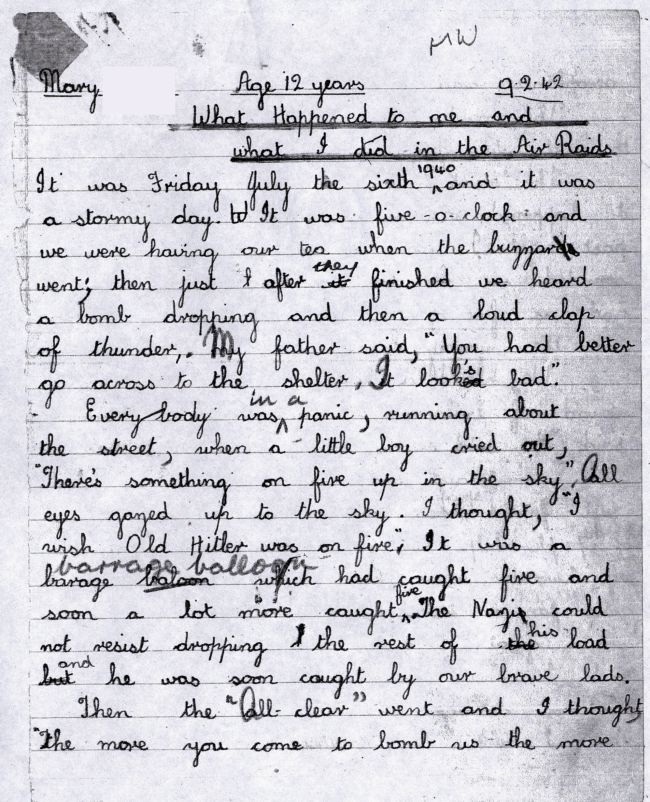 MW
Mary Age 12 years 9.2.42
What Happened to me and
what I did in the Air Raids
It was Friday July the sixth 1940 and it was
a stormy day. It was five-o-clock and
we were having our tea when the buzzard
went; then just after they finished we heard
a bomb dropping and then a loud clap
of thunder,. My father said, "You had better
go across to the shelter, It looks bad".
Everybody was in a panic, running about
the street, when a little boy cried out,
"There's something on fire up in the sky", All
eyes gazed up to the sky. I thought, "I
wish Old Hitler was on fire", It was a
barrage balloon
barage baloon which had caught fire and
soon a lot more caught fire. The Nazi could
not resist dropping the rest of his load
and he was soon caught by our brave lads.
Then the "All-clear" went and I thought,
"the more you come to bomb us the more